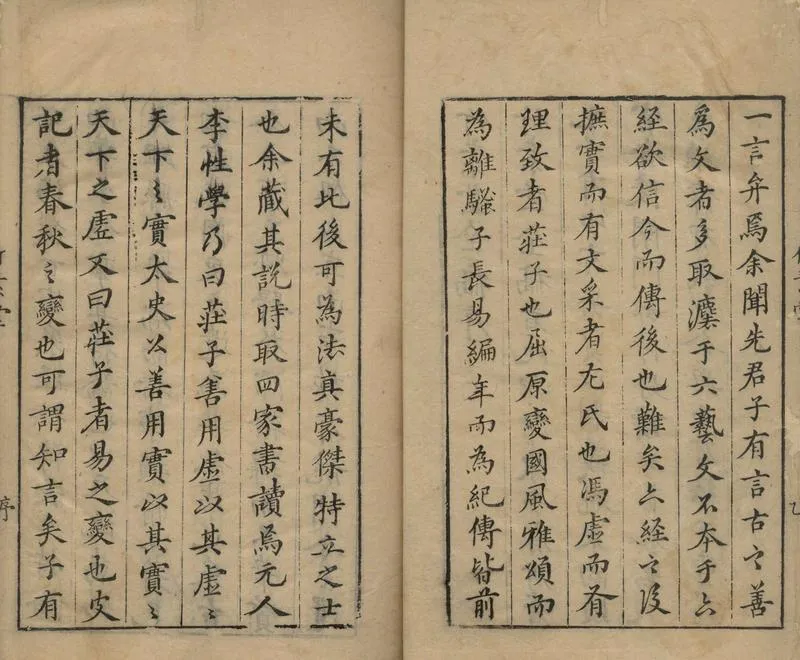 一言弁焉余聞先君子有言古之善
爲文者多取灋于六藝文不本于六
經欲信今而傳後也難矣六經之後
摭實而有文采者左氏也馮虛而有
理致者莊子也屈原變國風雅頌而
為離騷子長易編年而為紀傳皆前
未有比後可為法真豪傑特立之士
也余蔵其說時取四家書讀焉元人
李性學乃曰莊子善用虛以其虛〻
天下〻實太史公善用實以其實〻
天下之虛又曰莊子者易之變也史
記者春秋之變也可謂知言矣子有
序